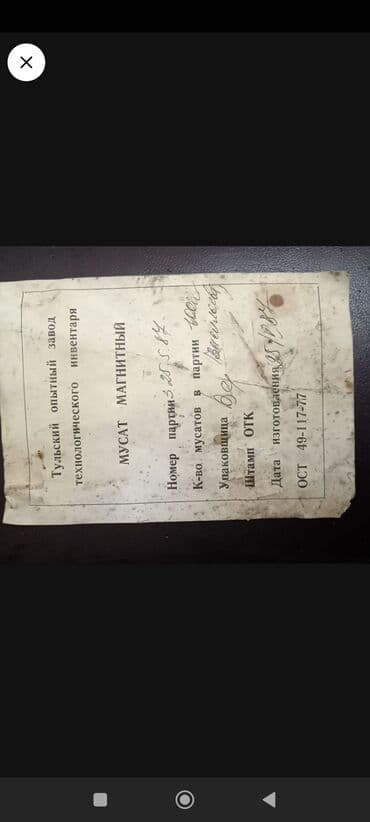 Тульский опытный завод
технологического инвентаря
МУСАТ МАГНИТНЫЙ
Номер партии
К-во мусатов в партии
Упаковщица
Штамп ОТК
Дата изготовления
ОСТ 49-117-77